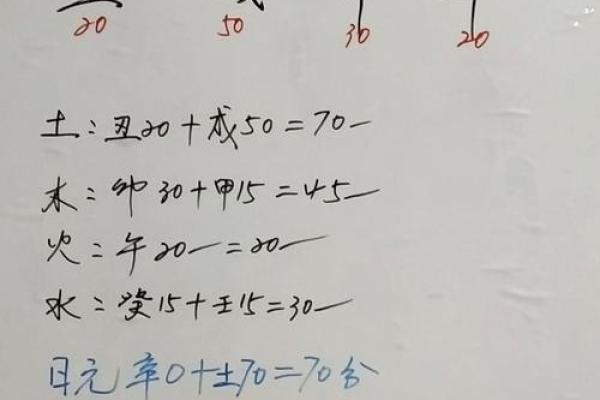 20 50 30 20
土：丑20+戌50=70—
木：卯30+甲15=45—
火：午20—=20—
水：癸15+壬15=30—
日元辛0+土70=70分